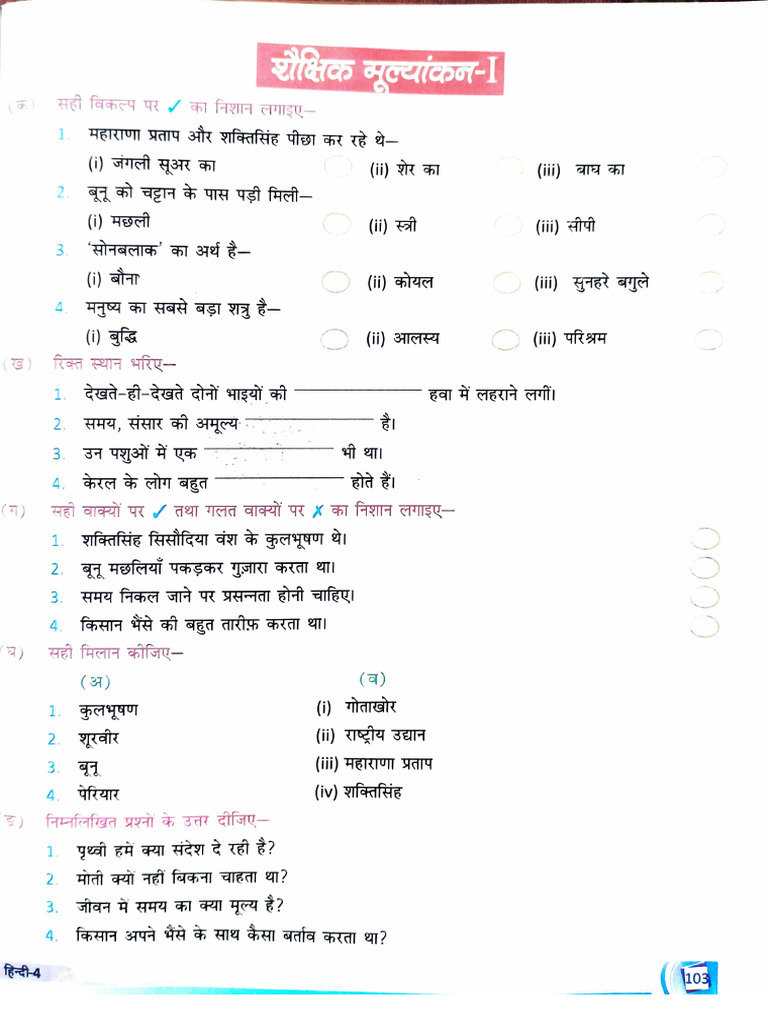 शैक्षिक मूल्यांकन-I
(क) सही विकल्प पर ✓ का निशान लगाइए—
1. महाराणा प्रताप और शक्तिसिंह पीछा कर रहे थे—
(i) जंगली सूअर का (ii) शेर का (iii) बाघ का
2. बूनू को चट्टान के पास पड़ी मिली—
(i) मछली (ii) स्त्री (iii) सीपी
3. 'सोनबलाक' का अर्थ है—
(i) बौना (ii) कोयल (iii) सुनहरे बगुले
4. मनुष्य का सबसे बड़ा शत्रु है—
(i) बुद्धि (ii) आलस्य (iii) परिश्रम
(ख) रिक्त स्थान भरिए—
1. देखते-ही-देखते दोनों भाइयों की ____________ हवा में लहराने लगीं।
2. समय, संसार की अमूल्य ____________ है।
3. उन पशुओं में एक ____________ भी था।
4. केरल के लोग बहुत ____________ होते हैं।
(ग) सही वाक्यों पर ✓ तथा गलत वाक्यों पर ✗ का निशान लगाइए—
1. शक्तिसिंह सिसौदिया वंश के कुलभूषण थे।
2. बूनू मछलियाँ पकड़कर गुज़ारा करता था।
3. समय निकल जाने पर प्रसन्नता होनी चाहिए।
4. किसान भैंसे की बहुत तारीफ़ करता था।
(घ) सही मिलान कीजिए—
(अ) (व)
1. कुलभूषण (i) गोताखोर
2. शूरवीर (ii) राष्ट्रीय उद्यान
3. बूनू (iii) महाराणा प्रताप
4. पेरियार (iv) शक्तिसिंह
(ङ) निम्नलिखित प्रश्नों के उत्तर दीजिए—
1. पृथ्वी हमें क्या संदेश दे रही है?
2. मोती क्यों नहीं बिकना चाहता था?
3. जीवन में समय का क्या मूल्य है?
4. किसान अपने भैंसे के साथ कैसा बर्ताव करता था?
हिन्दी-4 103